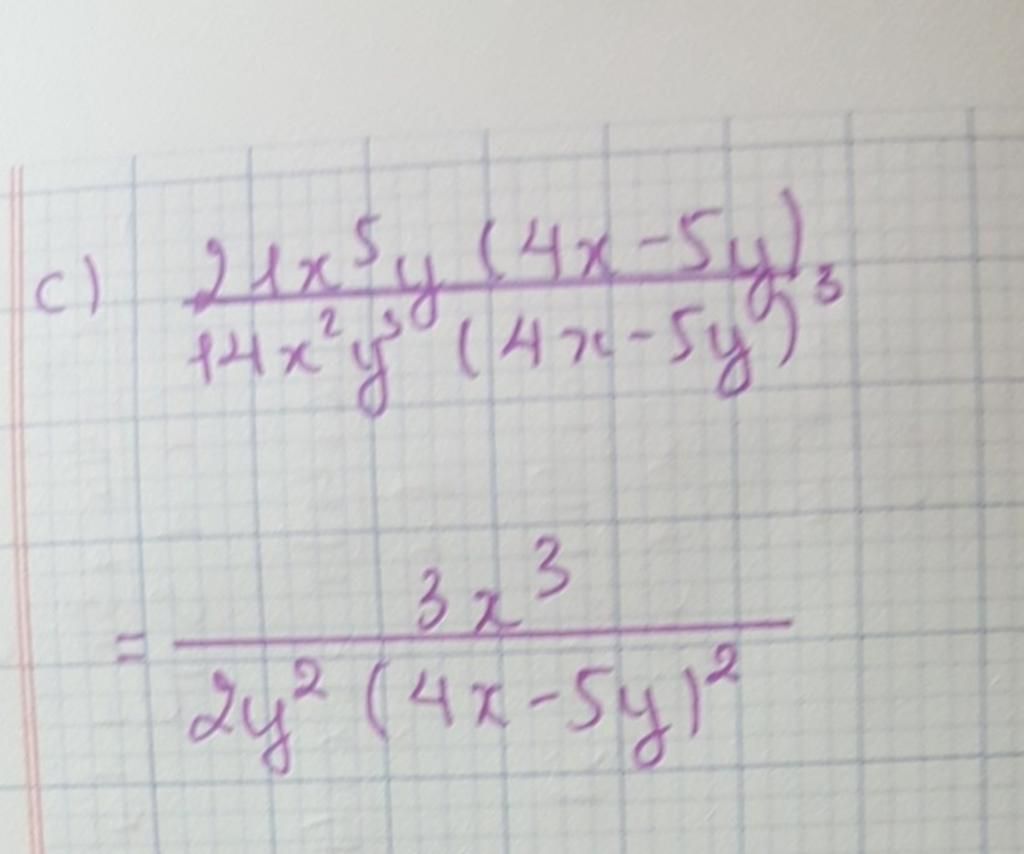 c) 21x⁵y (4x-5y)
14x²y³ (4x-5y)³
= 3x³
2y² (4x-5y)²